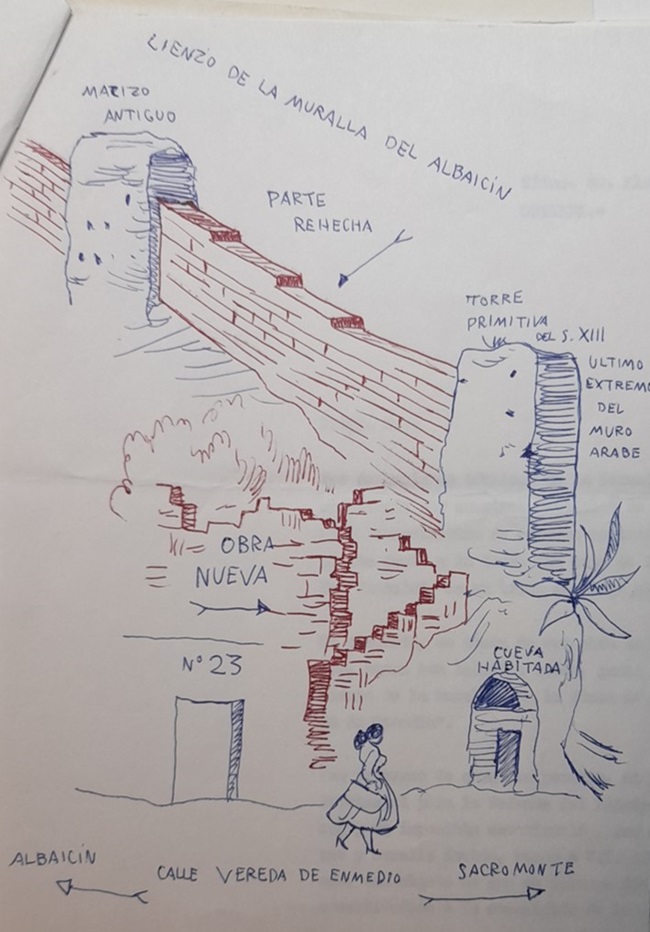 LIENZO DE LA MURALLA DEL ALBAICÍN
MACIZO
ANTIGUO
PARTE
REHECHA
TORRE
PRIMITIVA
DEL S. XIII
ULTIMO
EXTREMO
DEL
MURO
ARABE
OBRA
NUEVA
Nº 23
CUEVA
HABITADA
ALBAICÍN
CALLE VEREDA DE ENMEDIO
SACROMONTE